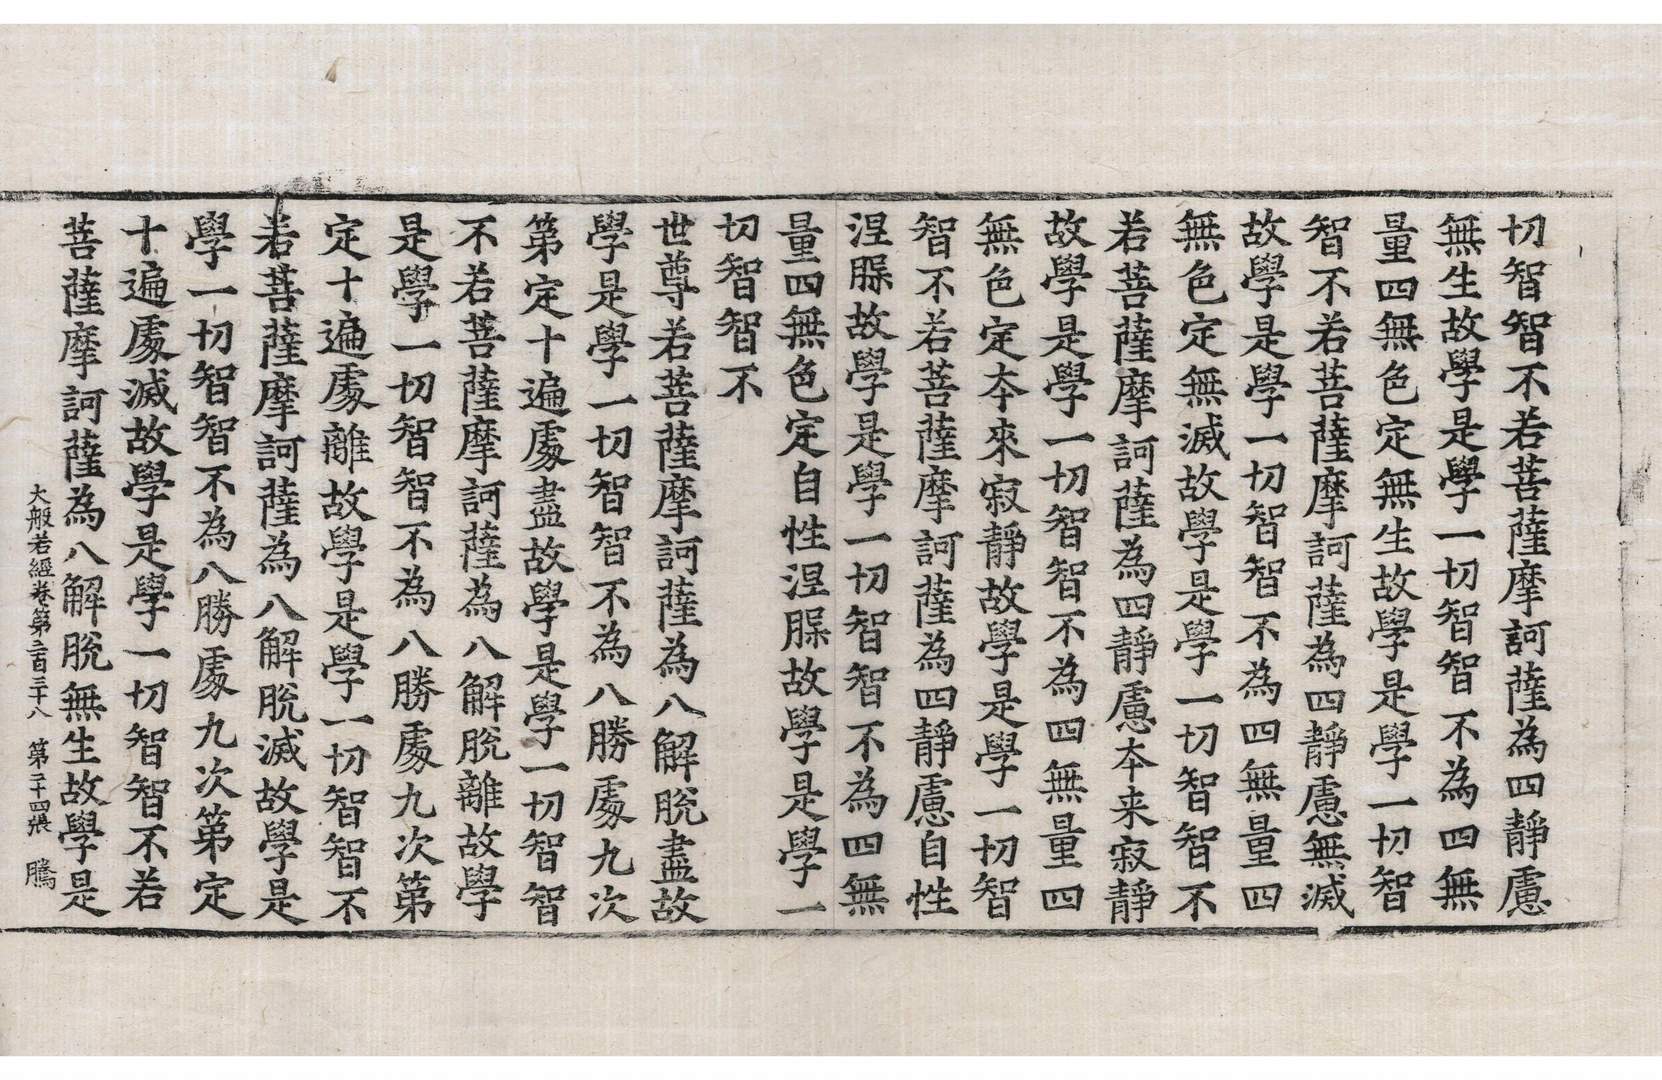 切智智不若菩薩摩訶薩為四靜慮
無生故學是學一切智智不為四無
量四無色定無生故學是學一切智
智不若菩薩摩訶薩為四靜慮無滅
故學是學一切智智不為四無量四
無色定無滅故學是學一切智智不
若菩薩摩訶薩為四靜慮本来寂靜
故學是學一切智智不為四無量四
無色定本來寂靜故學是學一切智
智不若菩薩摩訶薩為四靜慮自性
涅槃故學是學一切智智不為四無
量四無色定自性涅槃故學是學一
切智智不
世尊若菩薩摩訶薩為八解脫盡故
學是學一切智智不為八勝處九次
第定十遍處盡故學是學一切智智
不若菩薩摩訶薩為八解脫離故學
是學一切智智不為八勝處九次第
定十遍處離故學是學一切智智不
若菩薩摩訶薩為八解脫滅故學是
學一切智智不為八勝處九次第定
十遍處滅故學是學一切智智不若
菩薩摩訶薩為八解脫無生故學是
大般若經卷第三百三十八 第二十四張 騰